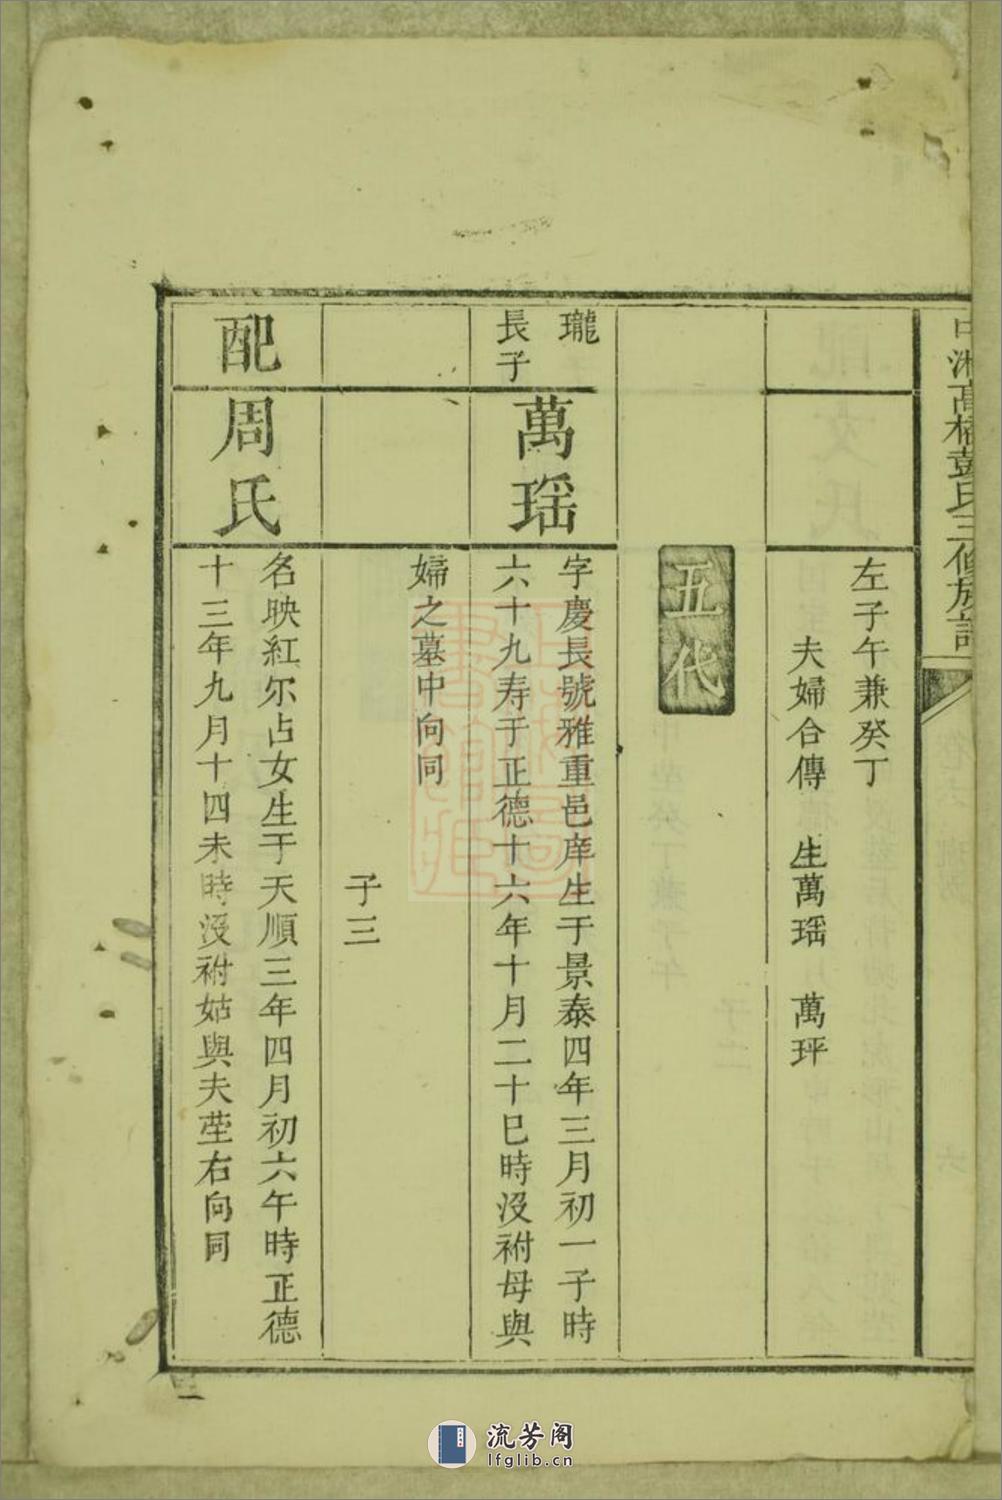 中湘高橋彭氏三修族譜
左子午兼癸丁
夫婦合傳　生萬瑶　萬玶
五代
瓏
長子
萬瑶
字慶長號雅重邑庠生于景泰四年三月初一子時
六十九寿于正德十六年十月二十巳時没祔母與
婦之墓中向同
子三
配
周氏
名映紅尔占女生于天順三年四月初六午時正德
十三年九月十四未時没祔姑與夫塋右向同
流芳阁
lfglib.cn